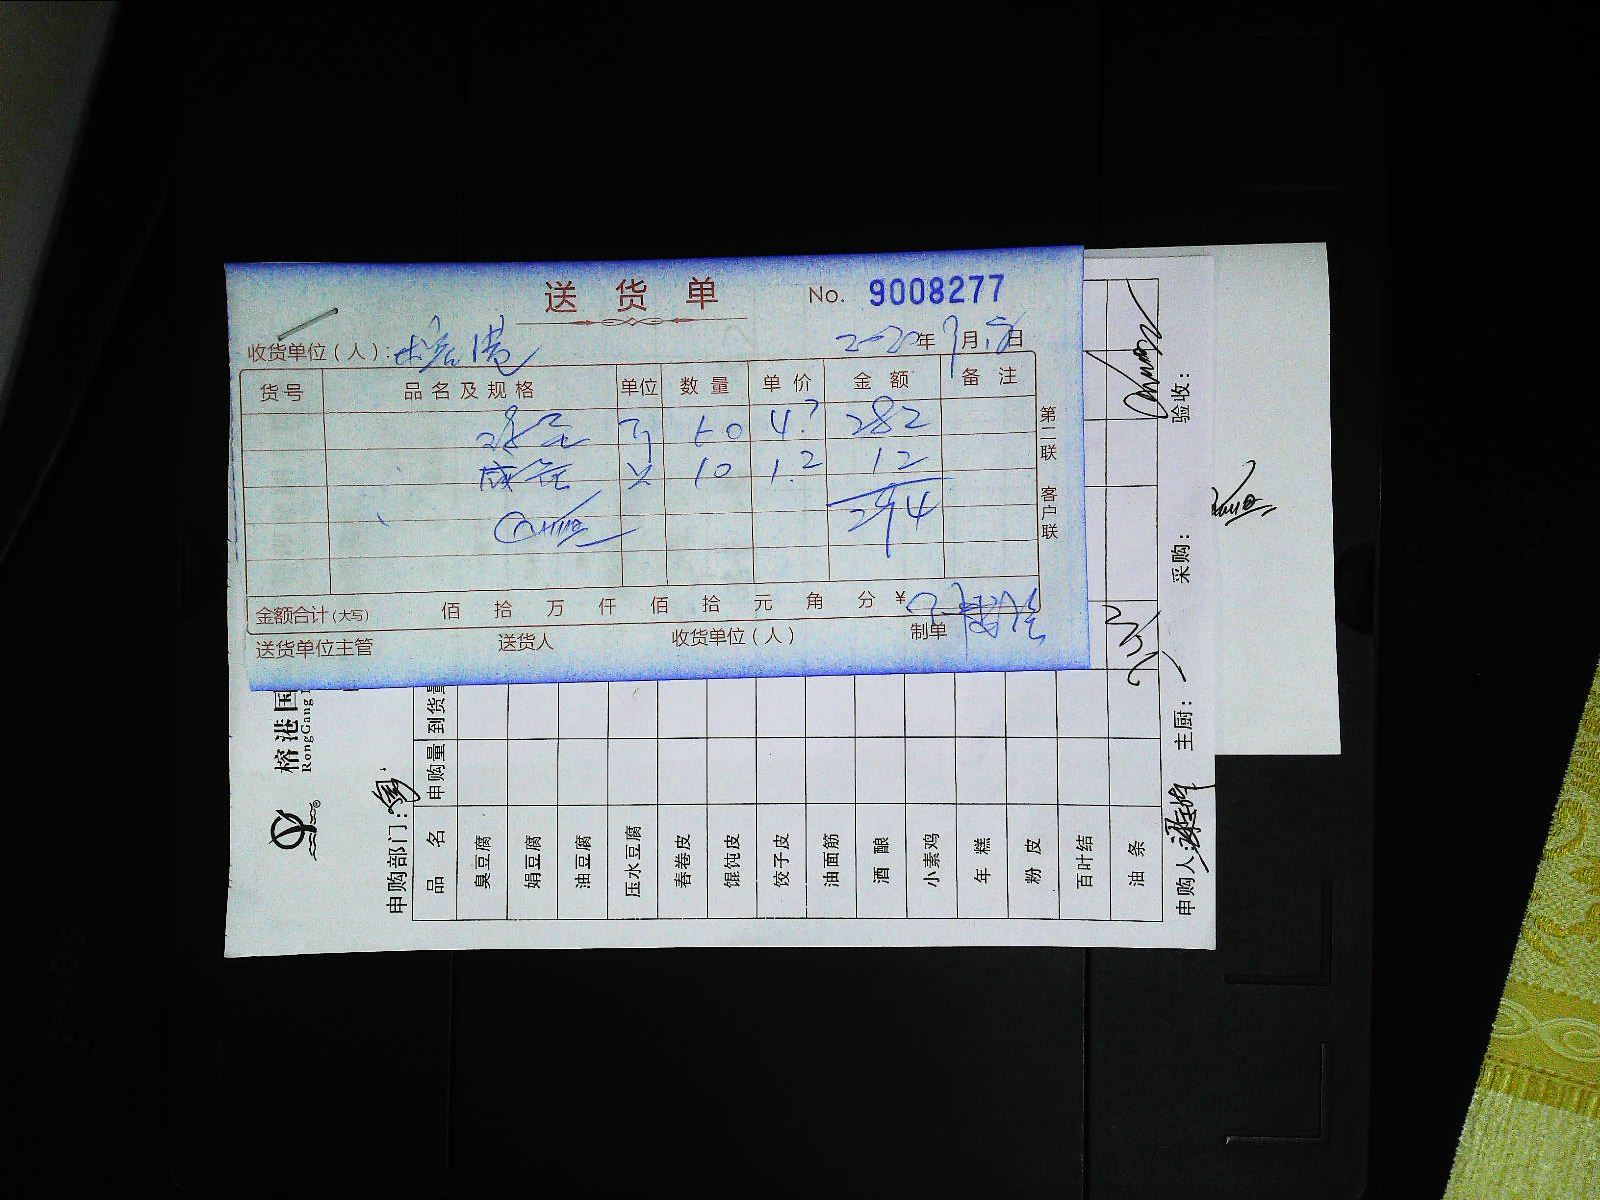 送货单 No. 9008277
收货单位（人）：榕港 2020年9月 日
货号 品名及规格 单位 数量 单价 金额 备注
60 4.7 282
10 1.2 12
294
金额合计(大写) 佰 拾 万 仟 佰 拾 元 角 分 ￥
送货单位主管 送货人 收货单位（人） 制单
第二联 客户联
榕港国
RongGang
申购部门：
品名 申购量 到货量
臭豆腐
娟豆腐
油豆腐
压水豆腐
春卷皮
馄饨皮
饺子皮
油面筋
酒酿
小素鸡
年糕
粉皮
百叶结
油条
申购人： 主厨： 采购： 验收：